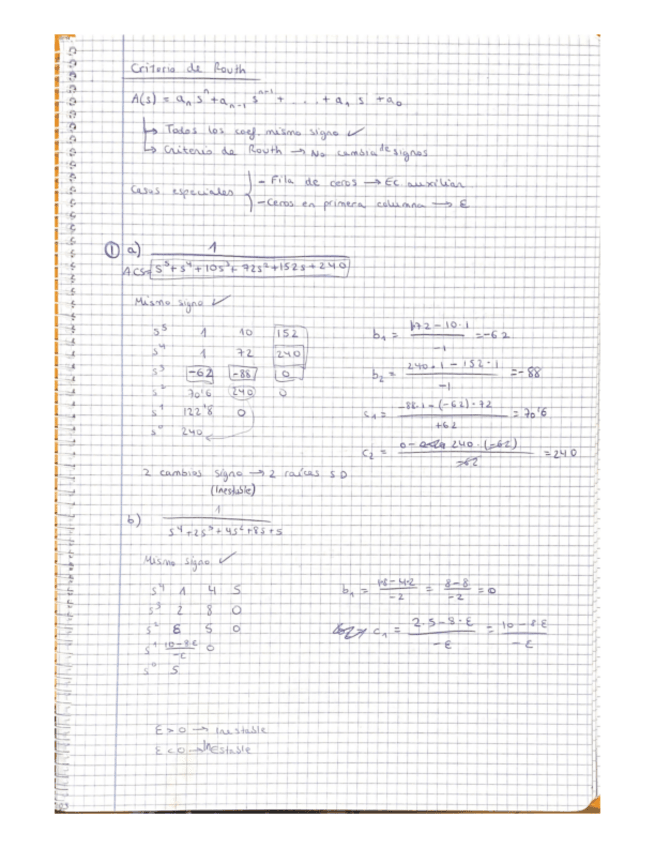 Criterio de Routh
A(s) = aₙ sⁿ + aₙ₋₁ sⁿ⁺¹ + . . . + a₁ s + a₀
↳ Todos los coef. mismo signo ✓
↳ Criterio de Routh → No cambia de signos
Casos especiales { - Fila de ceros → Ec auxiliar
- Ceros en primera columna → ε
① a) 1
A(s)= s⁵ + s⁴ + 10s³ + 72s² + 152s + 240
Mismo signo ✓
s⁵ 1 10 152
s⁴ 1 72 240
s³ -62 -88 0
s² 70'6 240 0
s¹ 122'8 0
s⁰ 240
b₁ = (1·72 - 10·1)/-1 = -62
b₂ = (240·1 - 152·1)/-1 = -88
c₁ = (-88·1 - (-62)·72)/+62 = 70'6
c₂ = (0 - 240·(-62))/-62 = 240
2 cambios signo → 2 raíces SD
(Inestable)
b) 1
s⁴ + 2s³ + 4s² + 8s + 5
Mismo signo ✓
s⁴ 1 4 5
s³ 2 8 0
s² ε 5 0
s¹ (10-8ε)/-ε 0
s⁰ 5
b₁ = (1·8 - 4·2)/-2 = (8-8)/-2 = 0
c₁ = (2·5 - 8·ε)/-ε = (10 - 8ε)/-ε
ε > 0 → Inestable
ε < 0 → InEstable